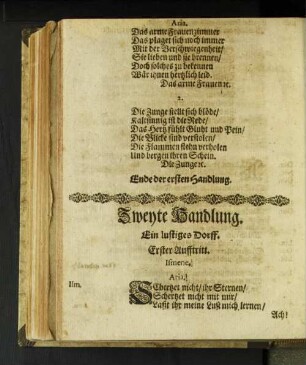 Aria.
Das arme Frauenzimmer
Das plaget sich noch immer
Mit der Verschwiegenheit/
Sie lieben und sie brennen/
Doch solches zu bekennen
Wär ihnen hertzlich leid.
Das arme Frauen ꝛc.
2.
Die Zunge stellt sich blöde/
Kaltsinnig ist die Rede/
Das Hertz fühlt Gluht und Pein/
Die Blicke sind verstolen/
Die Flammen stehn verholen
Und bergen ihren Schein.
Die Zunge ꝛc.
Ende der ersten Handlung.
Zweyte Handlung.
Ein lustiges Dorff.
Erster Aufftritt.
Ismene.
Aria.
Ism. Schertzet nicht/ ihr Sternen/
Schertzet nicht mit mir/
Laßt ihr meine Lust mich lernen/
Ach!